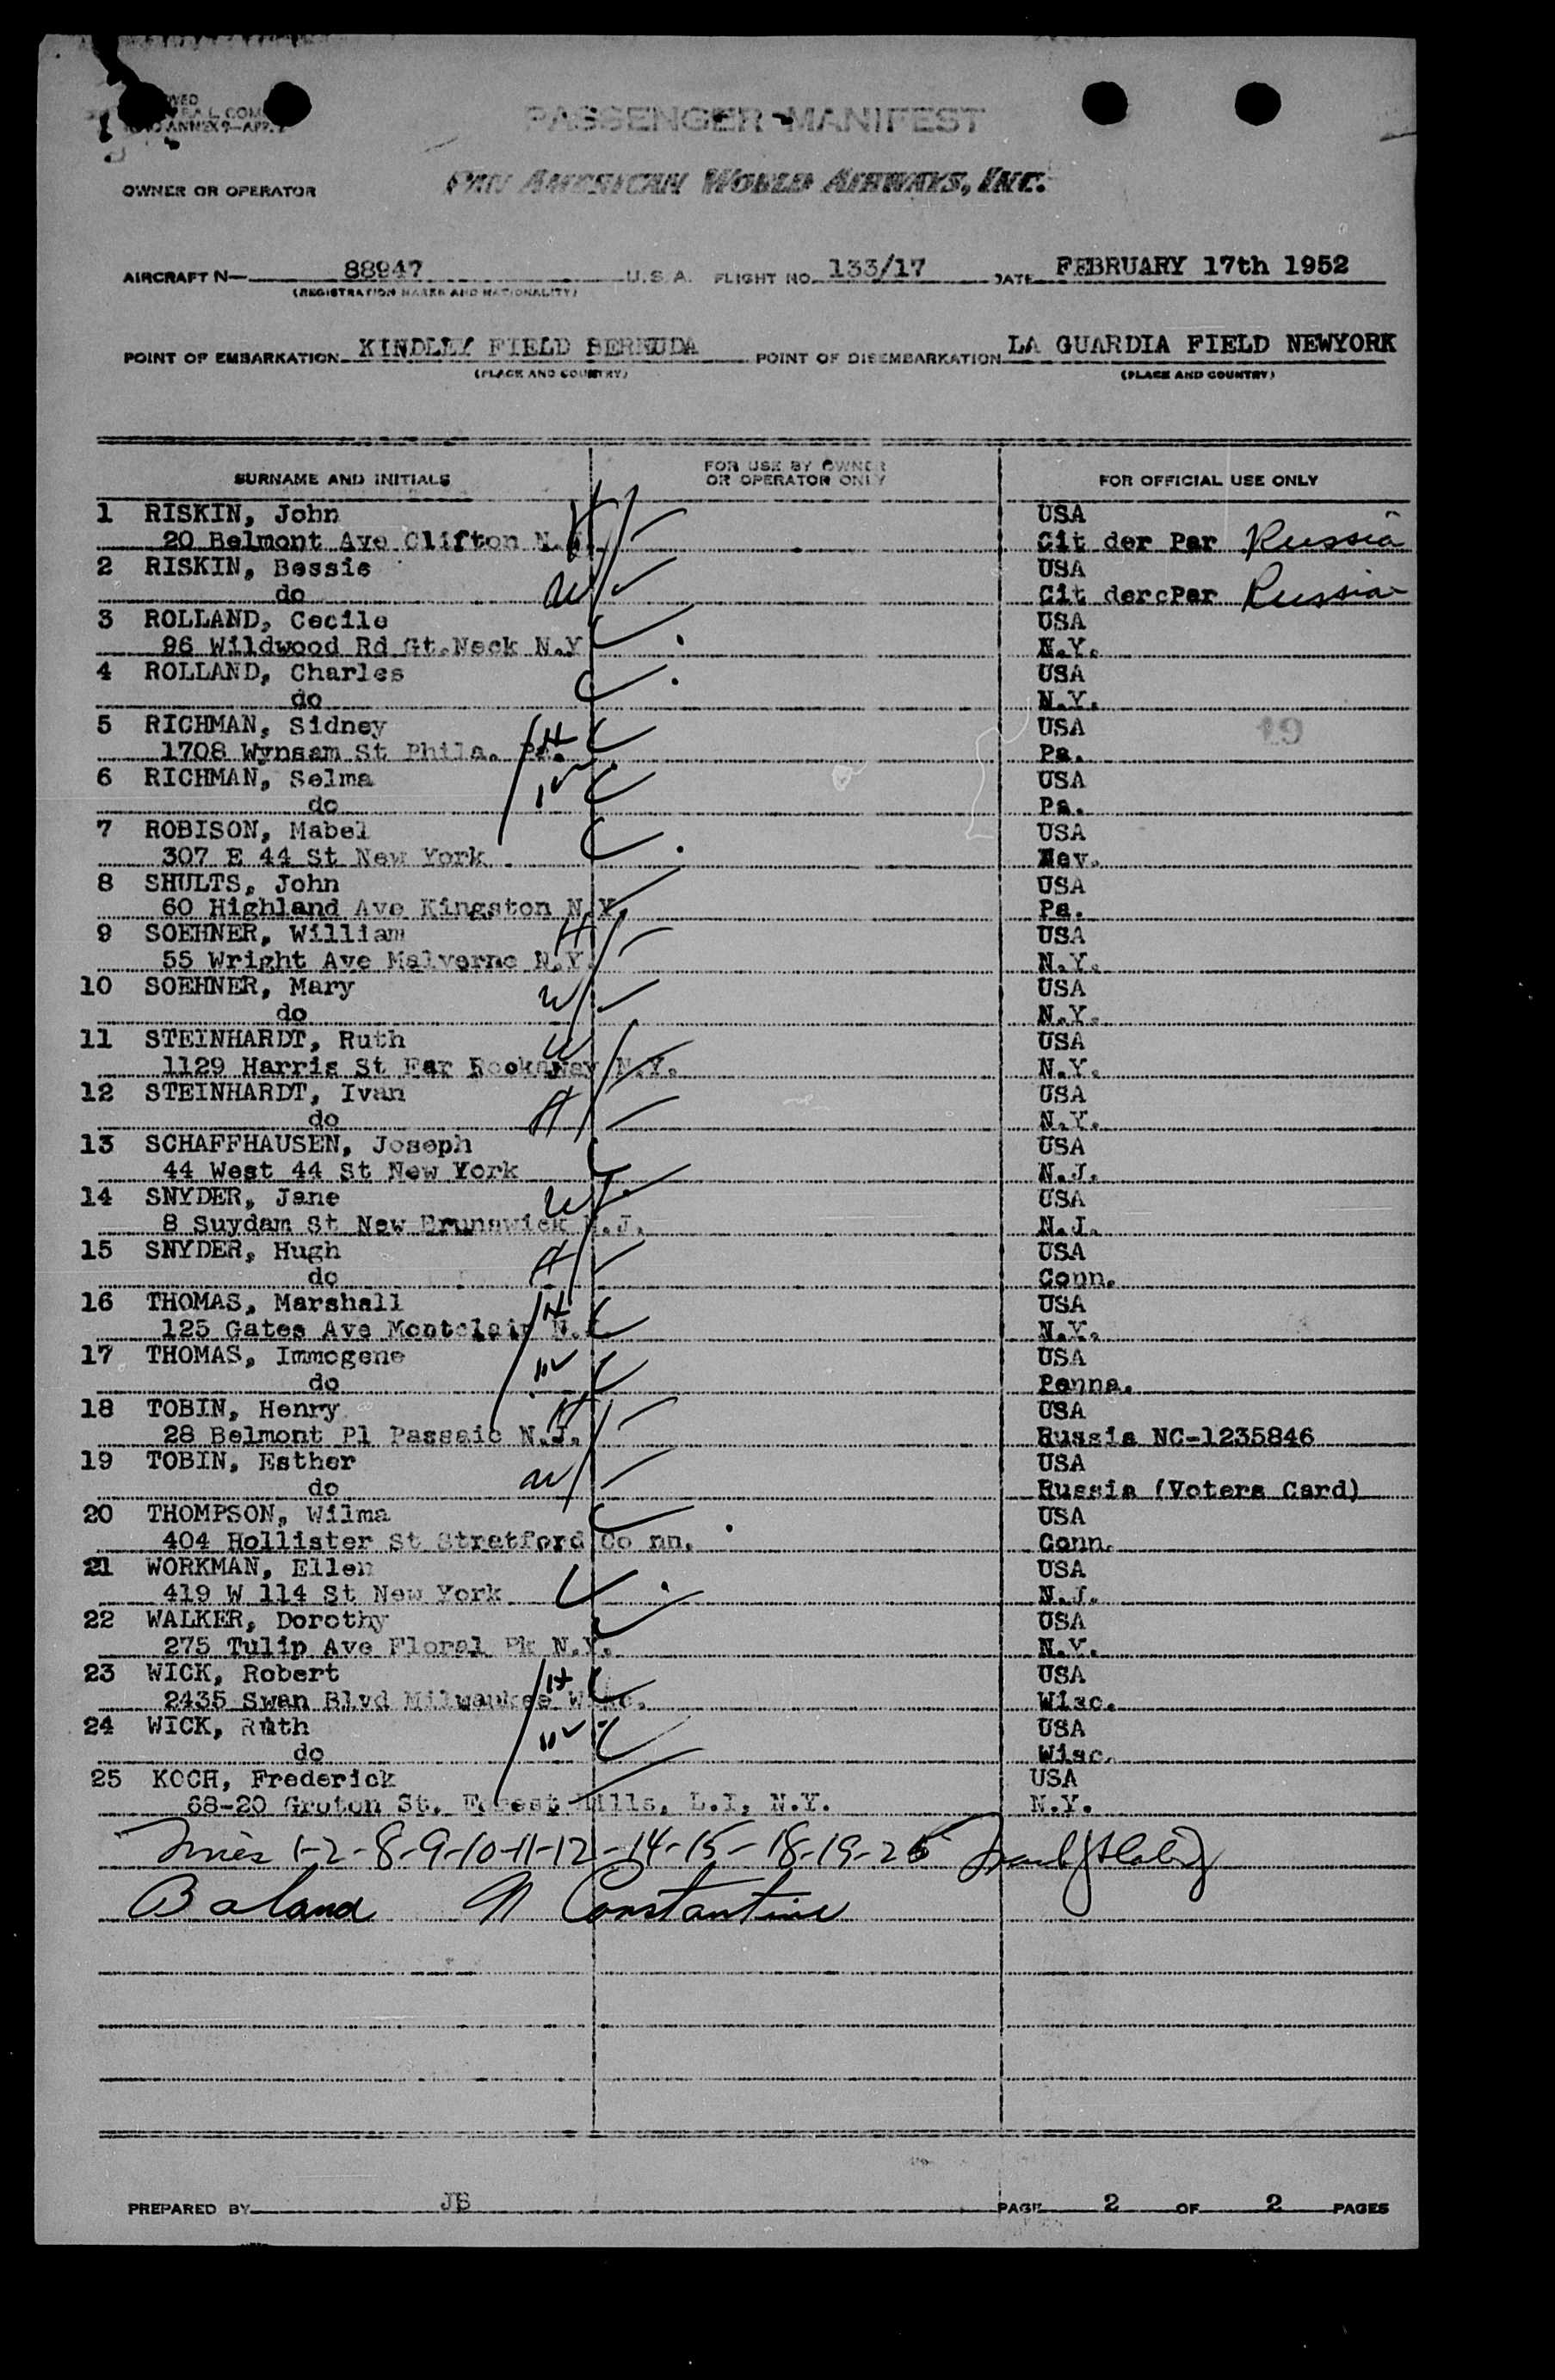 PASSENGER MANIFEST
ANNEX 9—APP.
OWNER OR OPERATOR PAN AMERICAN WORLD AIRWAYS, INC.
AIRCRAFT N— 88947 U.S.A. FLIGHT NO. 133/17 DATE FEBRUARY 17th 1952
(REGISTRATION MARKS AND NATIONALITY)
POINT OF EMBARKATION KINDLEY FIELD BERMUDA POINT OF DISEMBARKATION LA GUARDIA FIELD NEWYORK
(PLACE AND COUNTRY) (PLACE AND COUNTRY)
SURNAME AND INITIALS FOR USE BY OWNER OR OPERATOR ONLY FOR OFFICIAL USE ONLY
1 RISKIN, John H USA
20 Belmont Ave Clifton N. Cit der Par Russia
2 RISKIN, Bessie USA
do W Cit dercPar Russia
3 ROLLAND, Cecile USA
96 Wildwood Rd Gt.Neck N.Y N.Y.
4 ROLLAND, Charles USA
do N.Y.
5 RICHMAN, Sidney H USA 19
1708 Wynsam St Phila. Pa. Pa.
6 RICHMAN, Selma W USA
do Pa.
7 ROBISON, Mabel USA
307 E 44 St New York Nev.
8 SHULTS, John USA
60 Highland Ave Kingston N.Y. Pa.
9 SOEHNER, William H USA
55 Wright Ave Malverne N.Y. N.Y.
10 SOEHNER, Mary W USA
do N.Y.
11 STEINHARDT, Ruth W USA
1129 Harris St Far Rockaway N.Y. N.Y.
12 STEINHARDT, Ivan H USA
do N.Y.
13 SCHAFFHAUSEN, Joseph USA
44 West 44 St New York N.J.
14 SNYDER, Jane W USA
8 Suydam St New Brunswick N.J. N.J.
15 SNYDER, Hugh H USA
do Conn.
16 THOMAS, Marshall H USA
125 Gates Ave Montclair N. N.Y.
17 THOMAS, Immogene W USA
do Penna.
18 TOBIN, Henry H USA
28 Belmont Pl Passaic N.J. Russia NC-1235846
19 TOBIN, Esther W USA
do Russia (Voters Card)
20 THOMPSON, Wilma USA
404 Hollister St Stratford Co nn. Conn.
21 WORKMAN, Ellen USA
419 W 114 St New York N.J.
22 WALKER, Dorothy USA
275 Tulip Ave Floral Pk N.Y. N.Y.
23 WICK, Robert H USA
2435 Swan Blvd Milwaukee Wisc. Wisc.
24 WICK, Ruth W USA
do Wisc.
25 KOCH, Frederick USA
68-20 Groton St. Forest Hills, L.I, N.Y. N.Y.
1-2-8-9-10-11-12-14-15-18-19-25
N Constantine
PREPARED BY JB PAGE 2 OF 2 PAGES